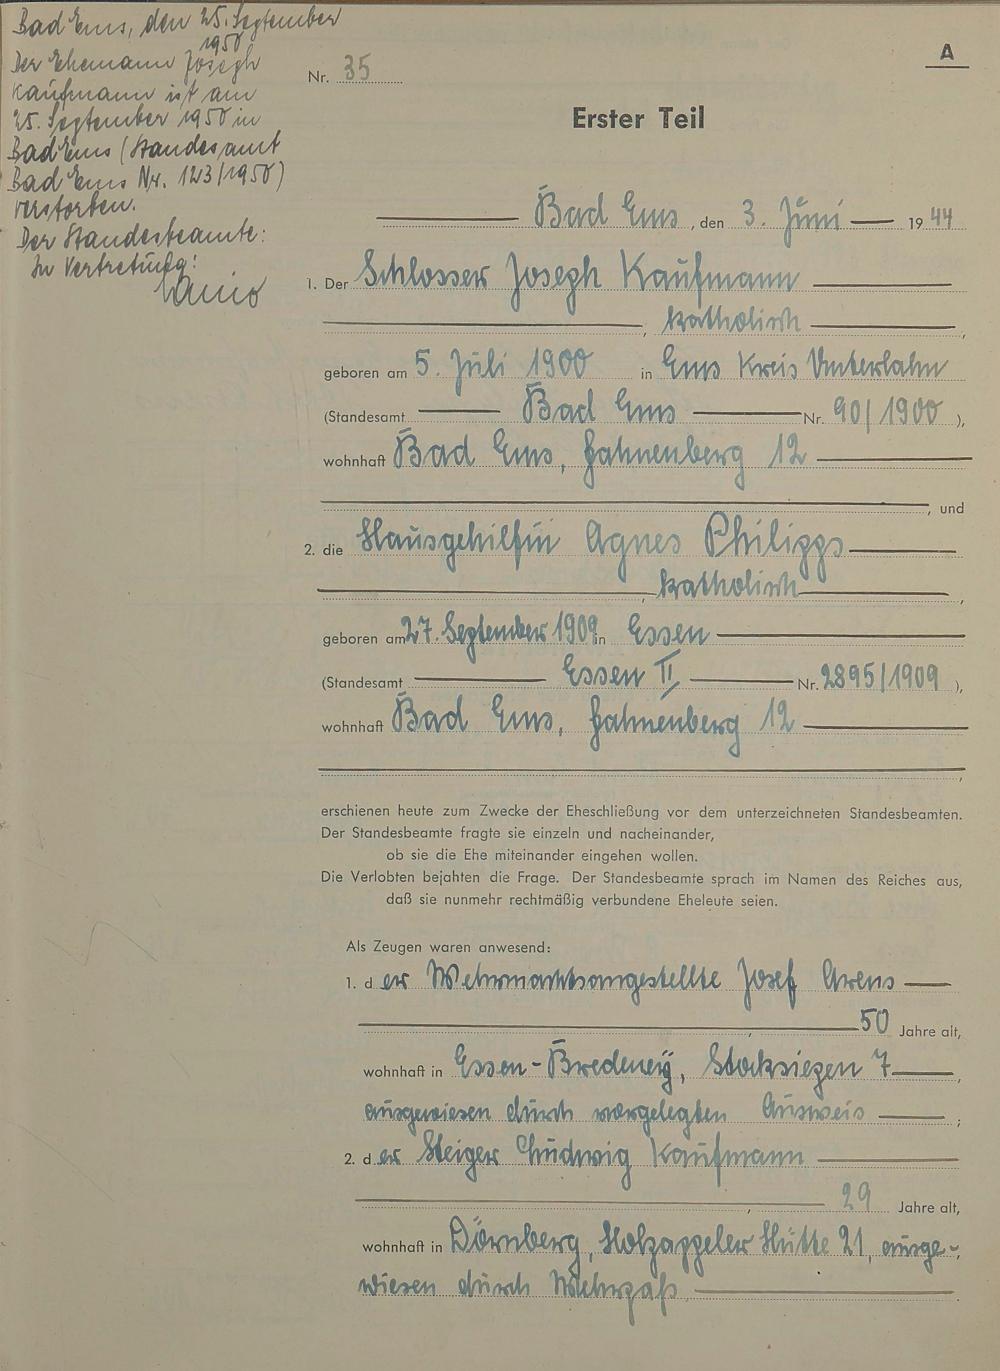 Bad Ems, den 25. September
1950
Der Ehemann Joseph
Kaufmann ist am
25. September 1950 in
Bad Ems (Standesamt
Bad Ems Nr. 123/1950)
verstorben.
Der Standesbeamte:
In Vertretung:
A
Nr. 35
Erster Teil
Bad Ems, den 3. Juni 1944
1. Der Schlosser Joseph Kaufmann
, katholisch ,
geboren am 5. Juli 1900 in Ems Kreis Unterlahn
(Standesamt Bad Ems Nr. 90/1900 ),
wohnhaft Bad Ems, Hahnenberg 12
, und
2. die Hausgehilfin Agnes Philipps
, katholisch ,
geboren am 27. September 1909 in Essen
(Standesamt Essen II Nr. 2895/1909 ),
wohnhaft Bad Ems, Hahnenberg 12
,
erschienen heute zum Zwecke der Eheschließung vor dem unterzeichneten Standesbeamten.
Der Standesbeamte fragte sie einzeln und nacheinander,
ob sie die Ehe miteinander eingehen wollen.
Die Verlobten bejahten die Frage. Der Standesbeamte sprach im Namen des Reiches aus,
daß sie nunmehr rechtmäßig verbundene Eheleute seien.
Als Zeugen waren anwesend:
1. der Wehrmachtsangestellte Josef Arens
, 50 Jahre alt,
wohnhaft in Essen-Bredeney, Stocksiepen 7 ,
ausgewiesen durch vorgelegten Ausweis ;
2. der Steiger Ludwig Kaufmann
, 29 Jahre alt,
wohnhaft in Dörnberg, Holzappeler Hütte 21, ausge-
wiesen durch Wehrpaß